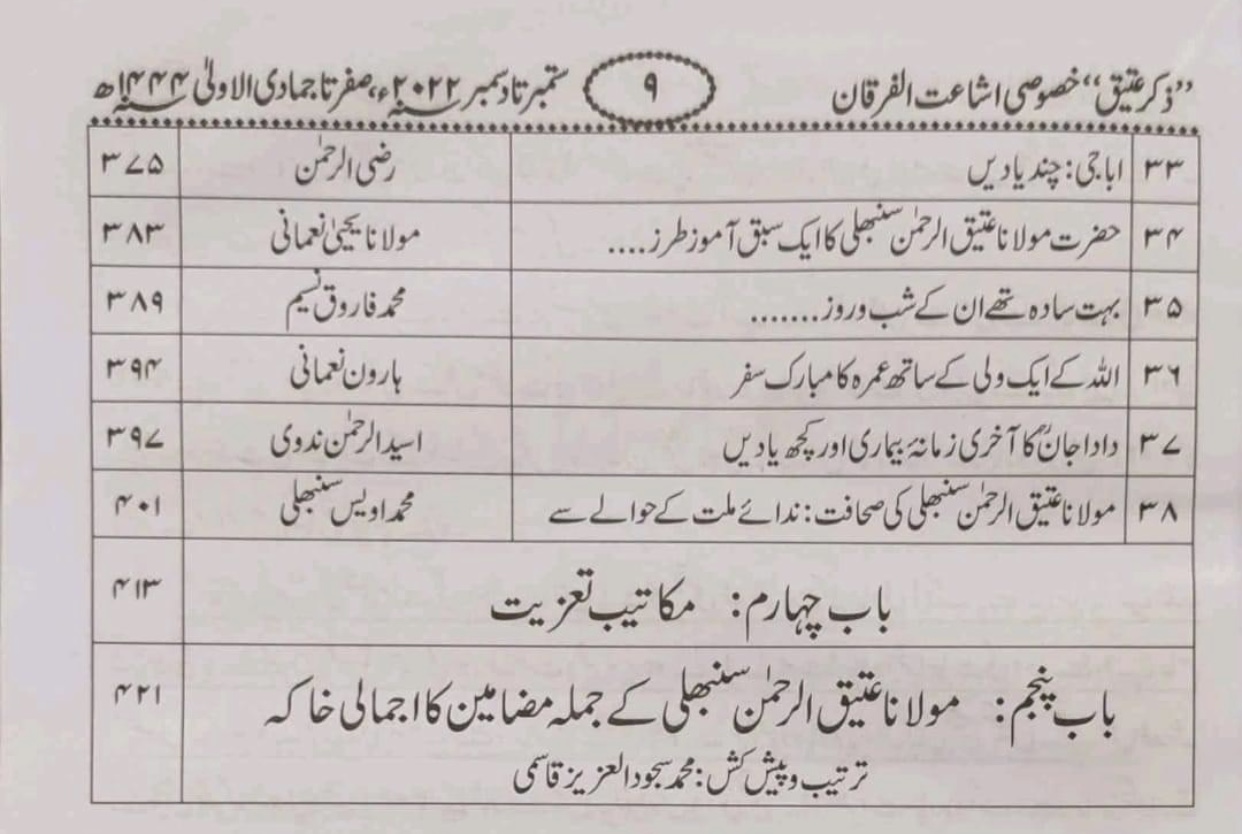 ”ذکر عتیق“ خصوصی اشاعت الفرقان ۹ ستمبر تا دسمبر ۲۰۲۲ء، صفر تا جمادی الاولیٰ ۱۴۴۴ھ
۳۳ اباجی: چند یادیں رضی الرحمٰن ۳۷۵
۳۴ حضرت مولانا عتیق الرحمٰن سنبھلی کا ایک سبق آموز طرز.... مولانا یحییٰ نعمانی ۳۸۳
۳۵ بہت سادہ تھے ان کے شب و روز....... محمد فاروق نسیم ۳۸۹
۳۶ اللہ کے ایک ولی کے ساتھ عمرہ کا مبارک سفر ہارون نعمانی ۳۹۴
۳۷ دادا جانؒ کا آخری زمانۂ بیماری اور کچھ یادیں اسید الرحمٰن ندوی ۳۹۷
۳۸ مولانا عتیق الرحمٰن سنبھلی کی صحافت: ندائے ملت کے حوالے سے محمد اویس سنبھلی ۴۰۱
باب چہارم: مکاتیب تعزیت ۴۱۳
باب پنجم: مولانا عتیق الرحمٰن سنبھلی کے جملہ مضامین کا اجمالی خاکہ ۴۲۱
ترتیب و پیش کش: محمد سجود العزیز قاسمی